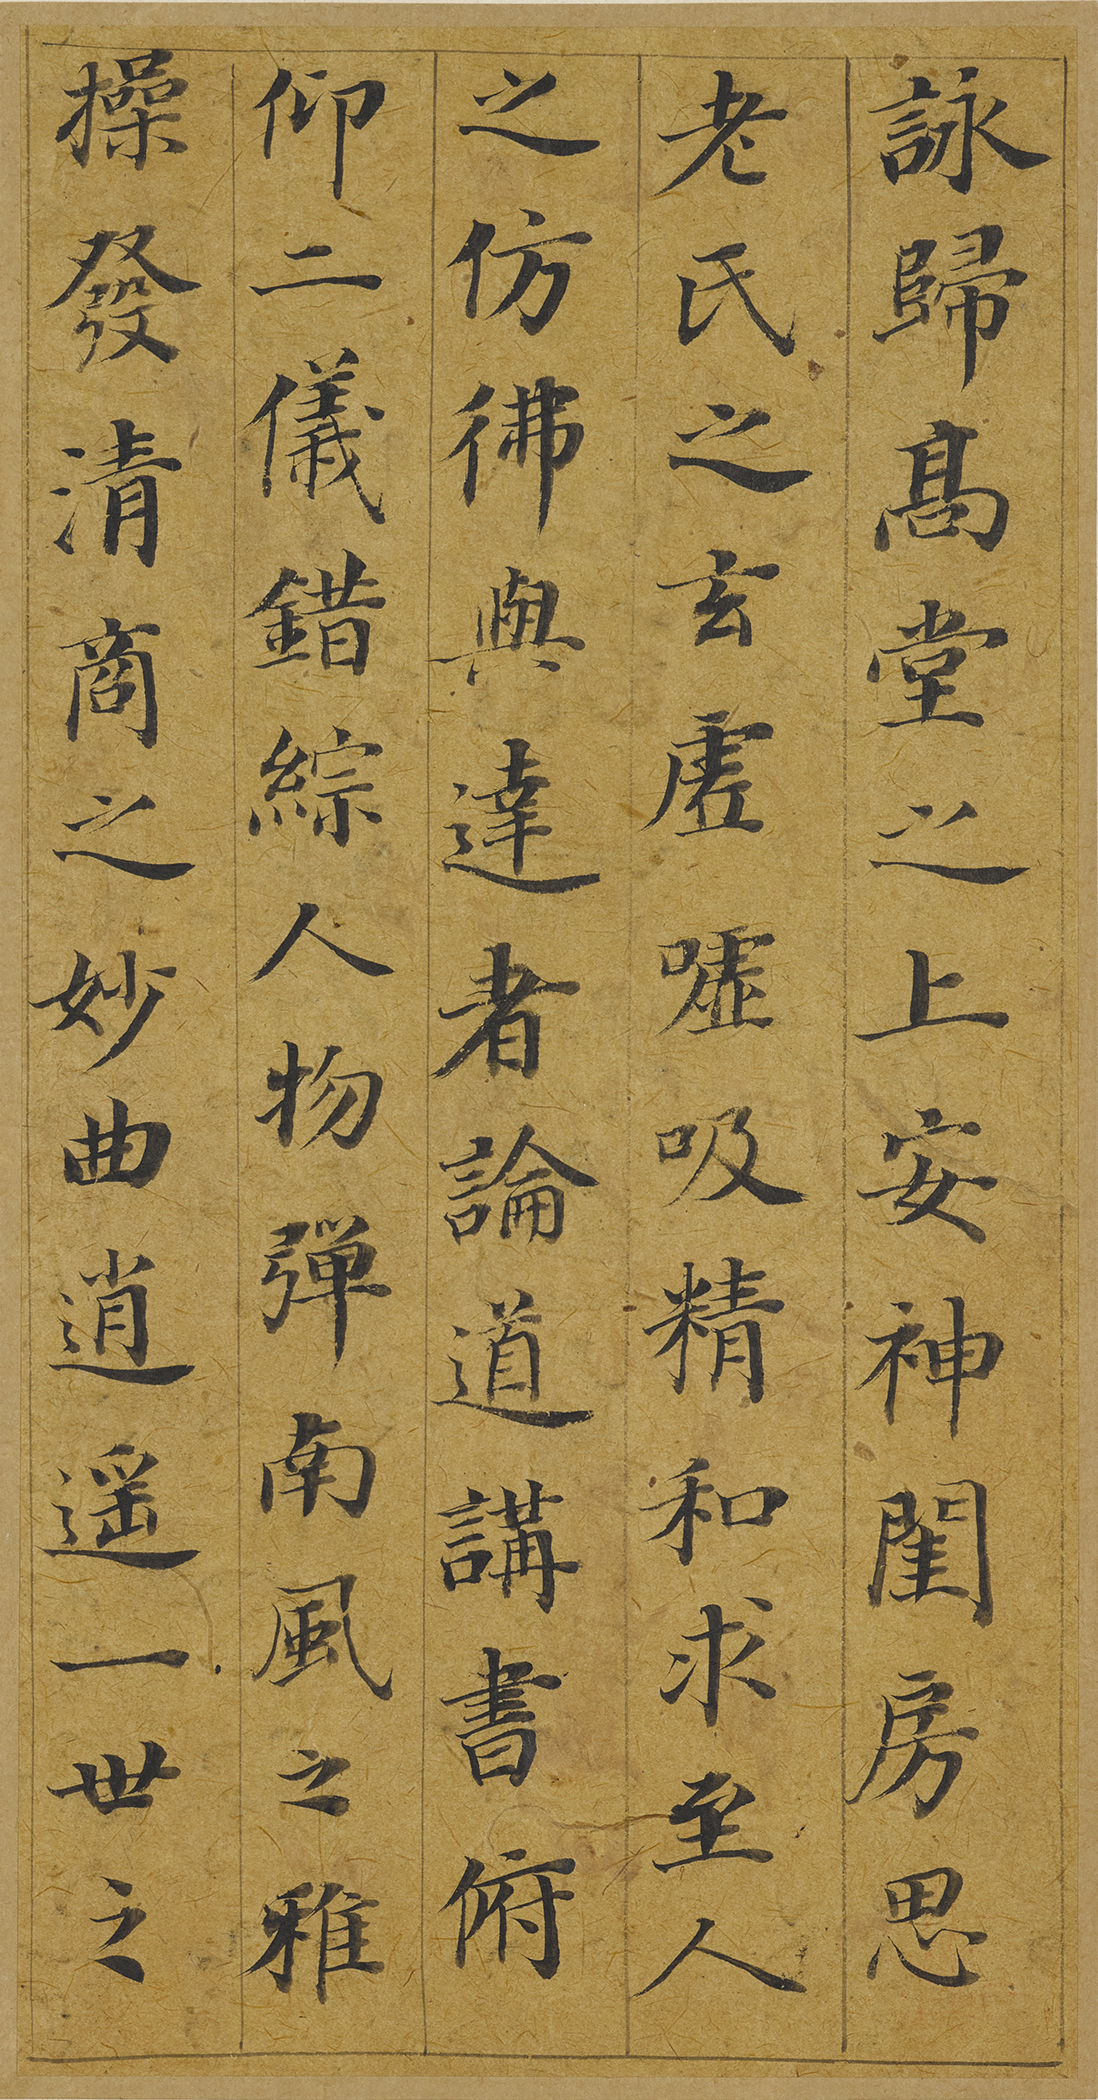 詠歸髙堂之上安神閨房思
老氏之玄虛噓吸精和求至人
之仿彿與達者論道講書俯
仰二儀錯綜人物彈南風之雅
操發清商之妙曲逍遥一世之